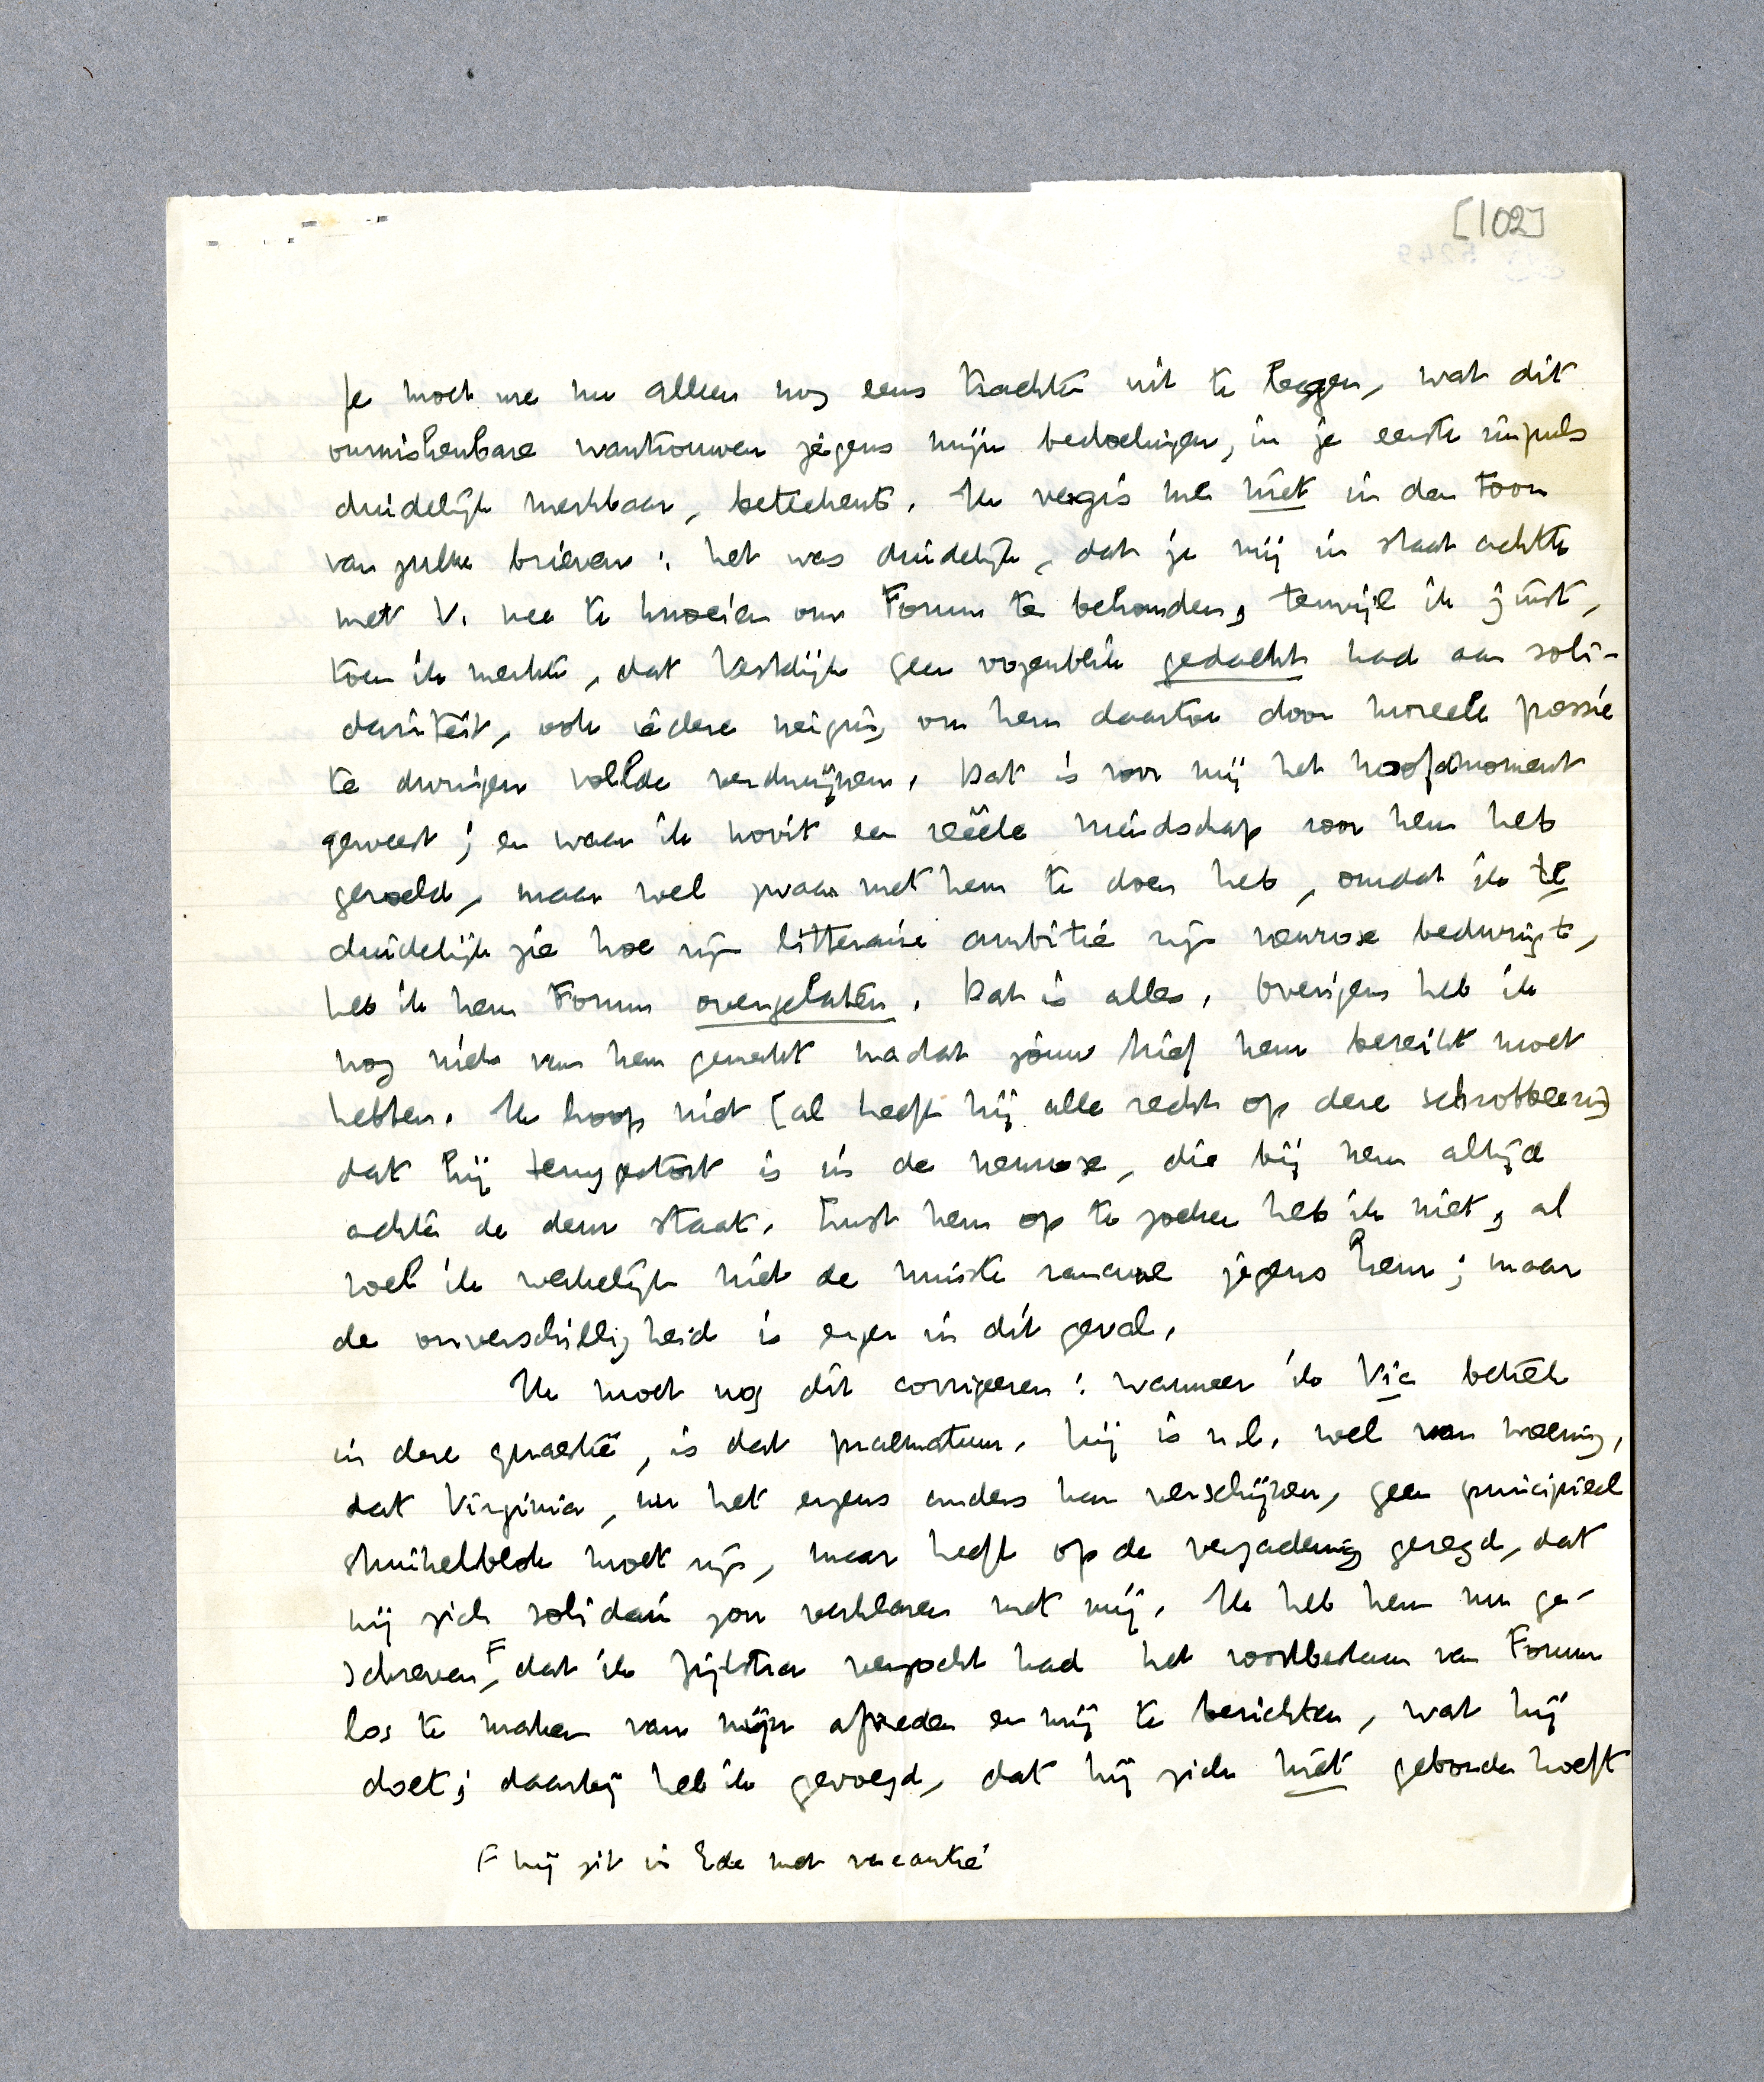 [102]
Je moet me nu alleen nog eens trachten uit te leggen, wat dit
onmiskenbare wantrouwen jegens mijn bedoelingen, in je eerste impuls
duidelijk merkbaar, beteekent. Ik vergis me niet in den toon
van zulke brieven: het was duidelijk, dat je mij in staat achtte
met V. mee te knoeien om Forum te behouden, terwijl ik juist,
toen ik merkte, dat Vestdijk geen oogenblik gedacht had aan soli-
dariteit, ook iedere neiging om hem daartoe door moreele pressie
te dwingen voelde verdwijnen. Dat is voor mij het hoofdmoment
geweest; en waar ik nooit een reëele vriendschap voor hem heb
gevoeld, maar wel zwaar met hem te doen heb, omdat ik te
duidelijk zie hoe zijn litteraire ambitie zijn neurose bedwingt,
heb ik hem Forum overgelaten. Dat is alles. Overigens heb ik
nog niets van hem gemerkt nadat jouw brief hem bereikt moet
hebben. Ik hoop niet (al heeft hij alle recht op deze schrobbeering)
dat hij teruggestort is in de neurose, die bij hem altijd
achter de deur staat. Lust hem op te zoeken heb ik niet, al
voel ik werkelijk niet de minste rancune jegens hem; maar
de onverschilligheid is erger in dit geval.
Ik moet nog dit corrigeeren: wanneer ik Vic betrek
in deze quaestie, is dat praematuur. Hij is n.l. wel van meening,
dat Virginia, nu het ergens anders kan verschijnen, geen principieel
struikelblok moet zijn, maar heeft op de vergadering gezegd, dat
hij zich solidair zou verklaren met mij. Ik heb hem nu ge-
schreven F, dat ik Zijlstra verzocht had het voortbestaan van Forum
los te maken van mijn aftreden en mij te berichten, wat hij
doet; daarbij heb ik gevoegd, dat hij zich niet gebonden hoeft
F hij zit in Ede met vacantie